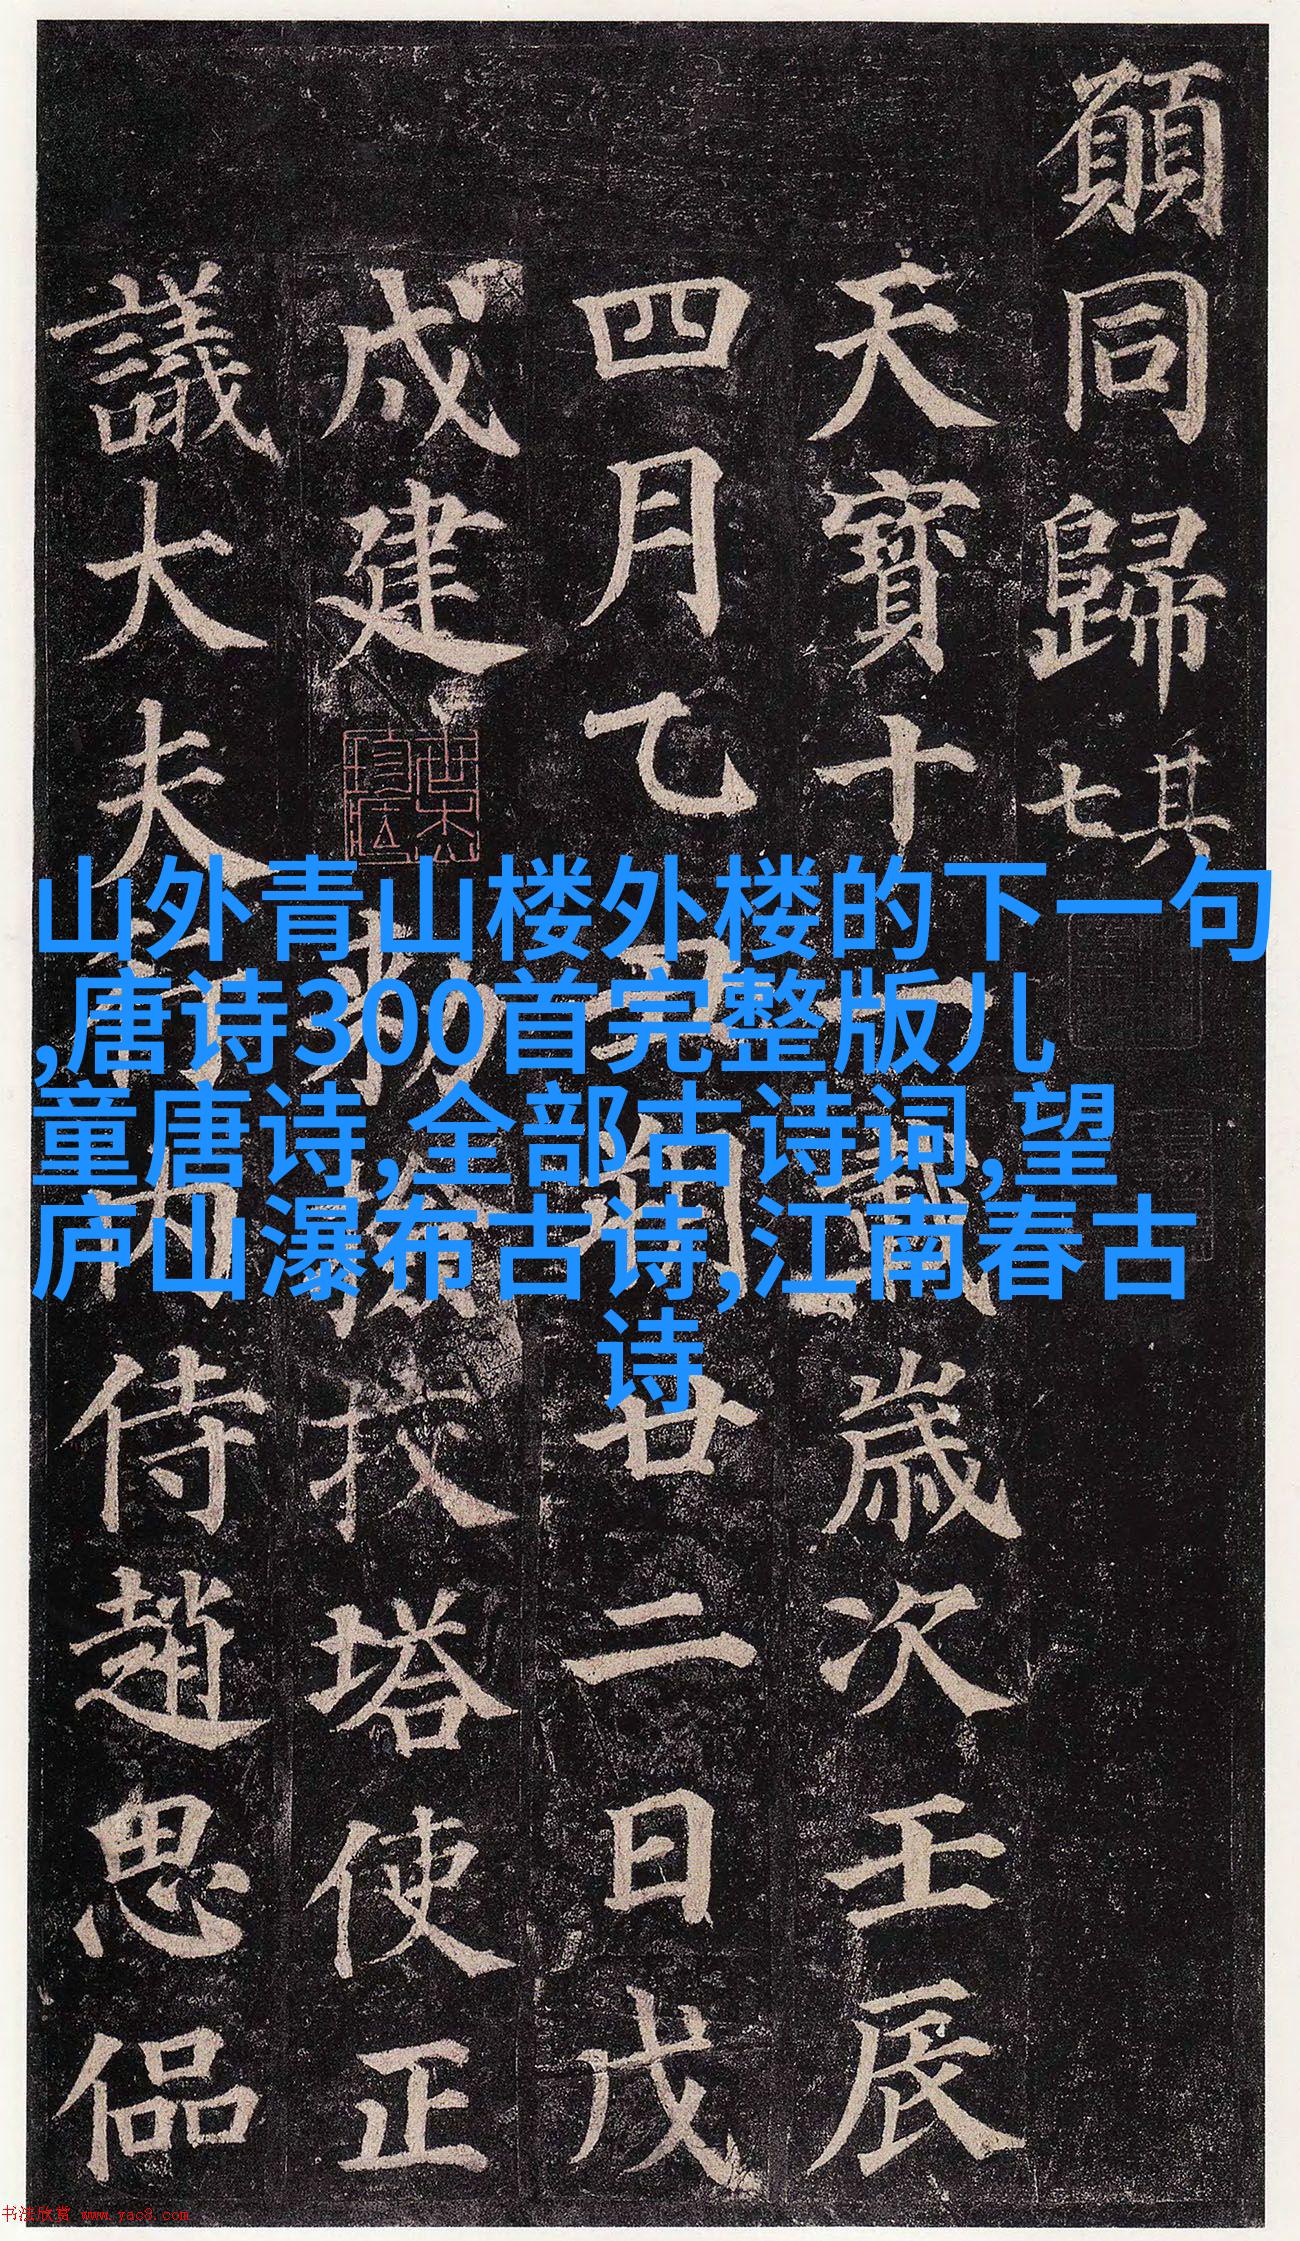 願同歸其七
天寶十一載歲次壬辰
四月乙丑朔廿二日戊
戌建勑檢挍塔使正
議大夫行內侍趙思偘
山外青山楼外楼的下一句
,唐诗300首完整版儿
童唐诗,全部古诗词,望
庐山瀑布古诗,江南春古
诗
书法欣赏 www.yac8.com